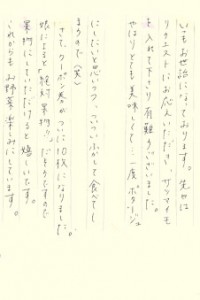 いつもお世話になっております。先日は
リクエストにお応えいただき、サツマイモ
を入れて下さり有難うございました。
やはりとても美味しくて、一度ポタージュ
にしたいと思いつつ、ついふかして食べてし
まうので(笑)
さて、クーポン券がついに10枚になりました。
娘によると“絶対果物!!”だそうですので
果物にしていただけると嬉しいです。
これからもお野菜楽しみにしています。